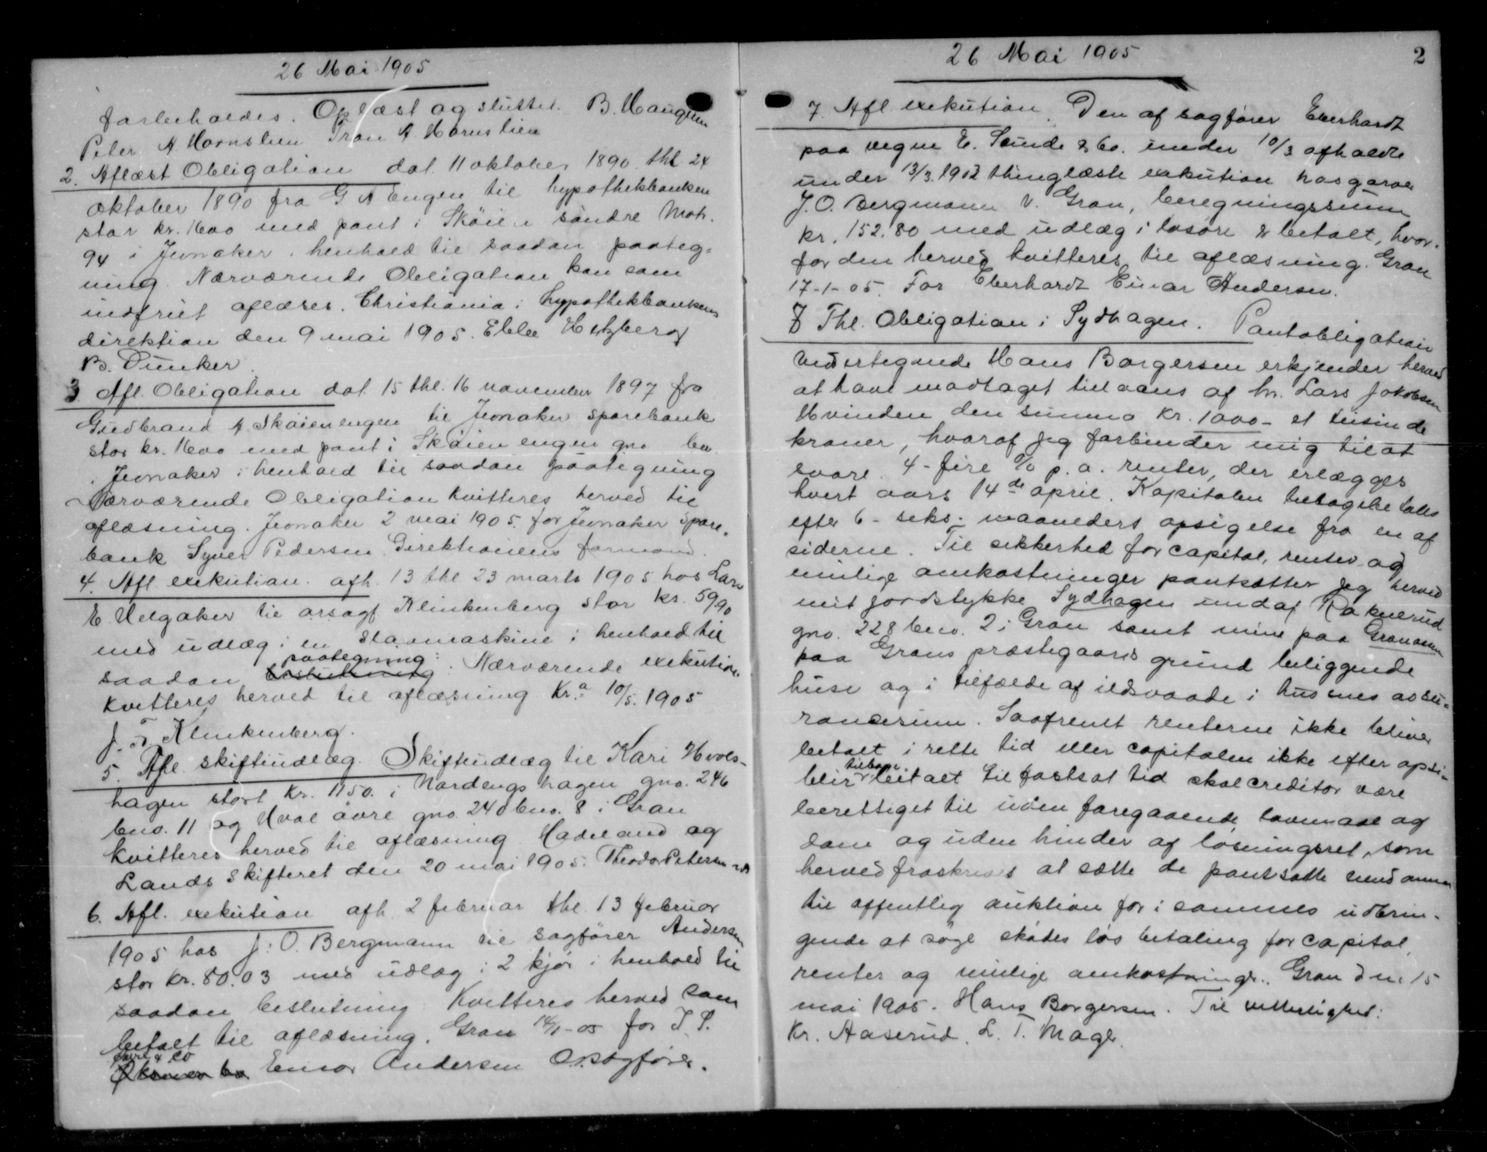 26 Mai 1905
forbeholdes. Oplæst og sluttet. B. Haugen
Peter A Hornslien Iver A Hornslien
2. Aflæst Obligation dat 11 oktober 1890 thl 24
oktober 1890 fra G A Engen til hypothekbanken
stor kr. 1600 med pant i Skøien søndre Matr.
94 i Jevnaker i henhold til saadan paateg-
ning. Nærværende Obligation kan som
indfriet aflæses. Christiania i hypothekbankens
direktion den 9 mai 1905. Ebbe Hertzberg
B. Dunker.
3 Afl. Obligation dat 15 thl. 16 november 1897 fra
Gudbrand A. Skøienengen til Jevnaker sparebank
stor kr. 1600 med pant i Skøienengen gno bn
i Jevnaker i henhold til saadan paategning
Nærværende Obligation kvitteres herved til
aflæsning. Jevnaker 2 mai 1905. for Jevnaker Spare-
bank Syver Pedersen Direktionens formand.
4. Afl exekution afh. 13 thl 23 marts 1905 hos Lars
E Velgaker til orsagf Klinkenberg stor kr. 59.90
med udlæg i en slaamaskine i henhold til
saadan paategning: Nærværende exekution
kvitteres herved til aflæsning Kr.a 10/5. 1905
J. F. Klinkenberg.
5. Afl. skiftiudlæg. Skifteudlæg til Kari Hvals-
hagen stort kr. 1150. i Nordengshagen gno. 246
bno. 11 og Hval øvre gno. 240 bno. 8 i Gran
kvitteres herved til aflæsning Hadeland og
Lands Skifteret den 20 mai 1905. Theodor Petersen
6. Afl. exekution afh 2 februar thl. 13 februar
1905 hos J. O. Bergmann til sagfører Andersen
stor kr. 80.03 med udlæg i 2 kjør i henhold til
saadan beslutning Kvitteres herved som
betalt til aflæsning. Gran 14/1-05 for J. P.
& Co Einar Andersen O.sagfører.
26 Mai 1905 2
7. Afl exekution. Den af sagfører Eberhardt
paa vegne E. Sunde & Co. under 10/3 afholdte
under 13/3. 1902 thinglæste exekution hos garver
J. O. Bergmann v. Gran, beregningssum
kr. 152.80 med udlæg i løsøre er betalt, hvor-
for den herved kvitteres til aflæsning. Gran
17-1-05. For Eberhardt Einar Andersen.
8 Thl. Obligation i Sydhagen. Pantobligation
Undertegnede Hans Borgersen erkjender herved
at have modtaget tillaans af hr. Lars Jakobsen
Hvinden den summa kr. 1000 - et tusinde
kroner, hvoraf jeg forbinder mig til at
svare 4 - fire % p.a. renter, der erlægges
hvert aars 14de april. Kapitalen tilbagebetales
efter 6 - seks - maaneders opsigelse fra en af
siderne. Til sikkerhed for capital, renter og
mulige omkostninger pantsætter jeg herved
mit jordstykke Sydhagen undaf Raknerud
gno. 228 bno. 2 i Gran samt mine paa Granaasen
paa Grans præstegaards grund beliggende
huse og i tilfælde af ildsvaade i husenes assu-
rancesum. Saafremt renterne ikke bliver
betalt i rette tid eller capitalen ikke efter opsi-
blir tilbage betalt til fastsat tid skal creditor være
berettiget til uden foregaaende lovmaal og
dom og uden hinder af løsningsret, som
herved fraskrives at sætte de pantsatte eiendomme
til offentlig auktion for i sammes udbrin-
gende at søge skades løs betaling for capital,
renter og mulige omkostninger. Gran den 15
mai 1905. Hans Borgersen. Til vitterlighed:
Kr. Aaserud. L. T. Mage.